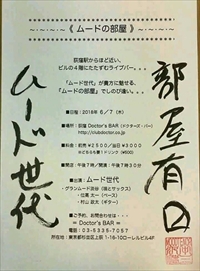 《 ムードの部屋 》
荻窪駅からほど近い、
ビルの4階にたたずむライブバー。。。
「ムード世代」が貴方に魅せる、
『ムードの部屋』でしのび逢い。。。
■日程:2018年 6/7(木)
■場所:荻窪 Doctor's BAR(ドクターズ・バー)
http://clubdoctor.co.jp
■料金:前売¥2500/当日¥3000
■時間:開場 午後7時/開演 午後7時30分
■出演:ムード世代
・グランムード渋谷(唄とサックス)
・辻萬 太一(ベース)
・村山 宏太(ギター)
■ご予約、お問合わせは・・・
= Doctor's BAR =
電話:03-5335-7057
所在地:東京都杉並区上荻 1-16-10ローレルビル4F
ムード世代
部屋有口